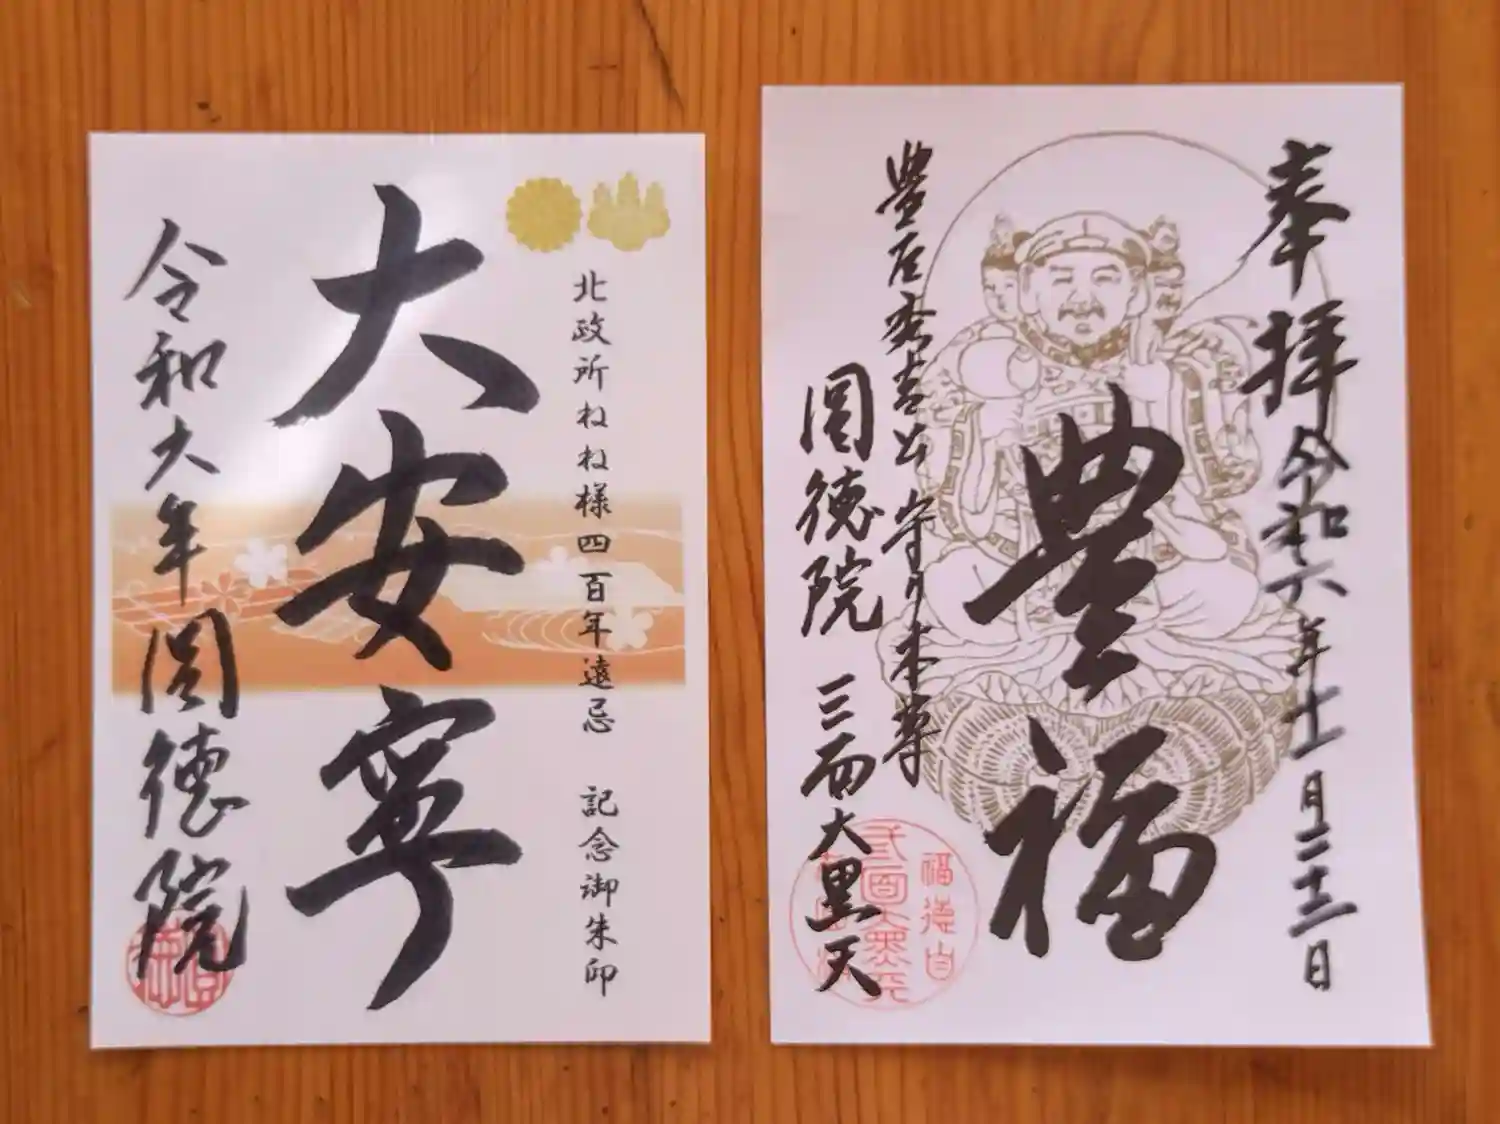 北政所ねね様四百年遠忌 記念御朱印
大安寧
令和六年圓徳院
奉拝
令和六年十一月二十三日
豊福
豊臣秀吉公守り本尊
圓徳院 三面大黒天